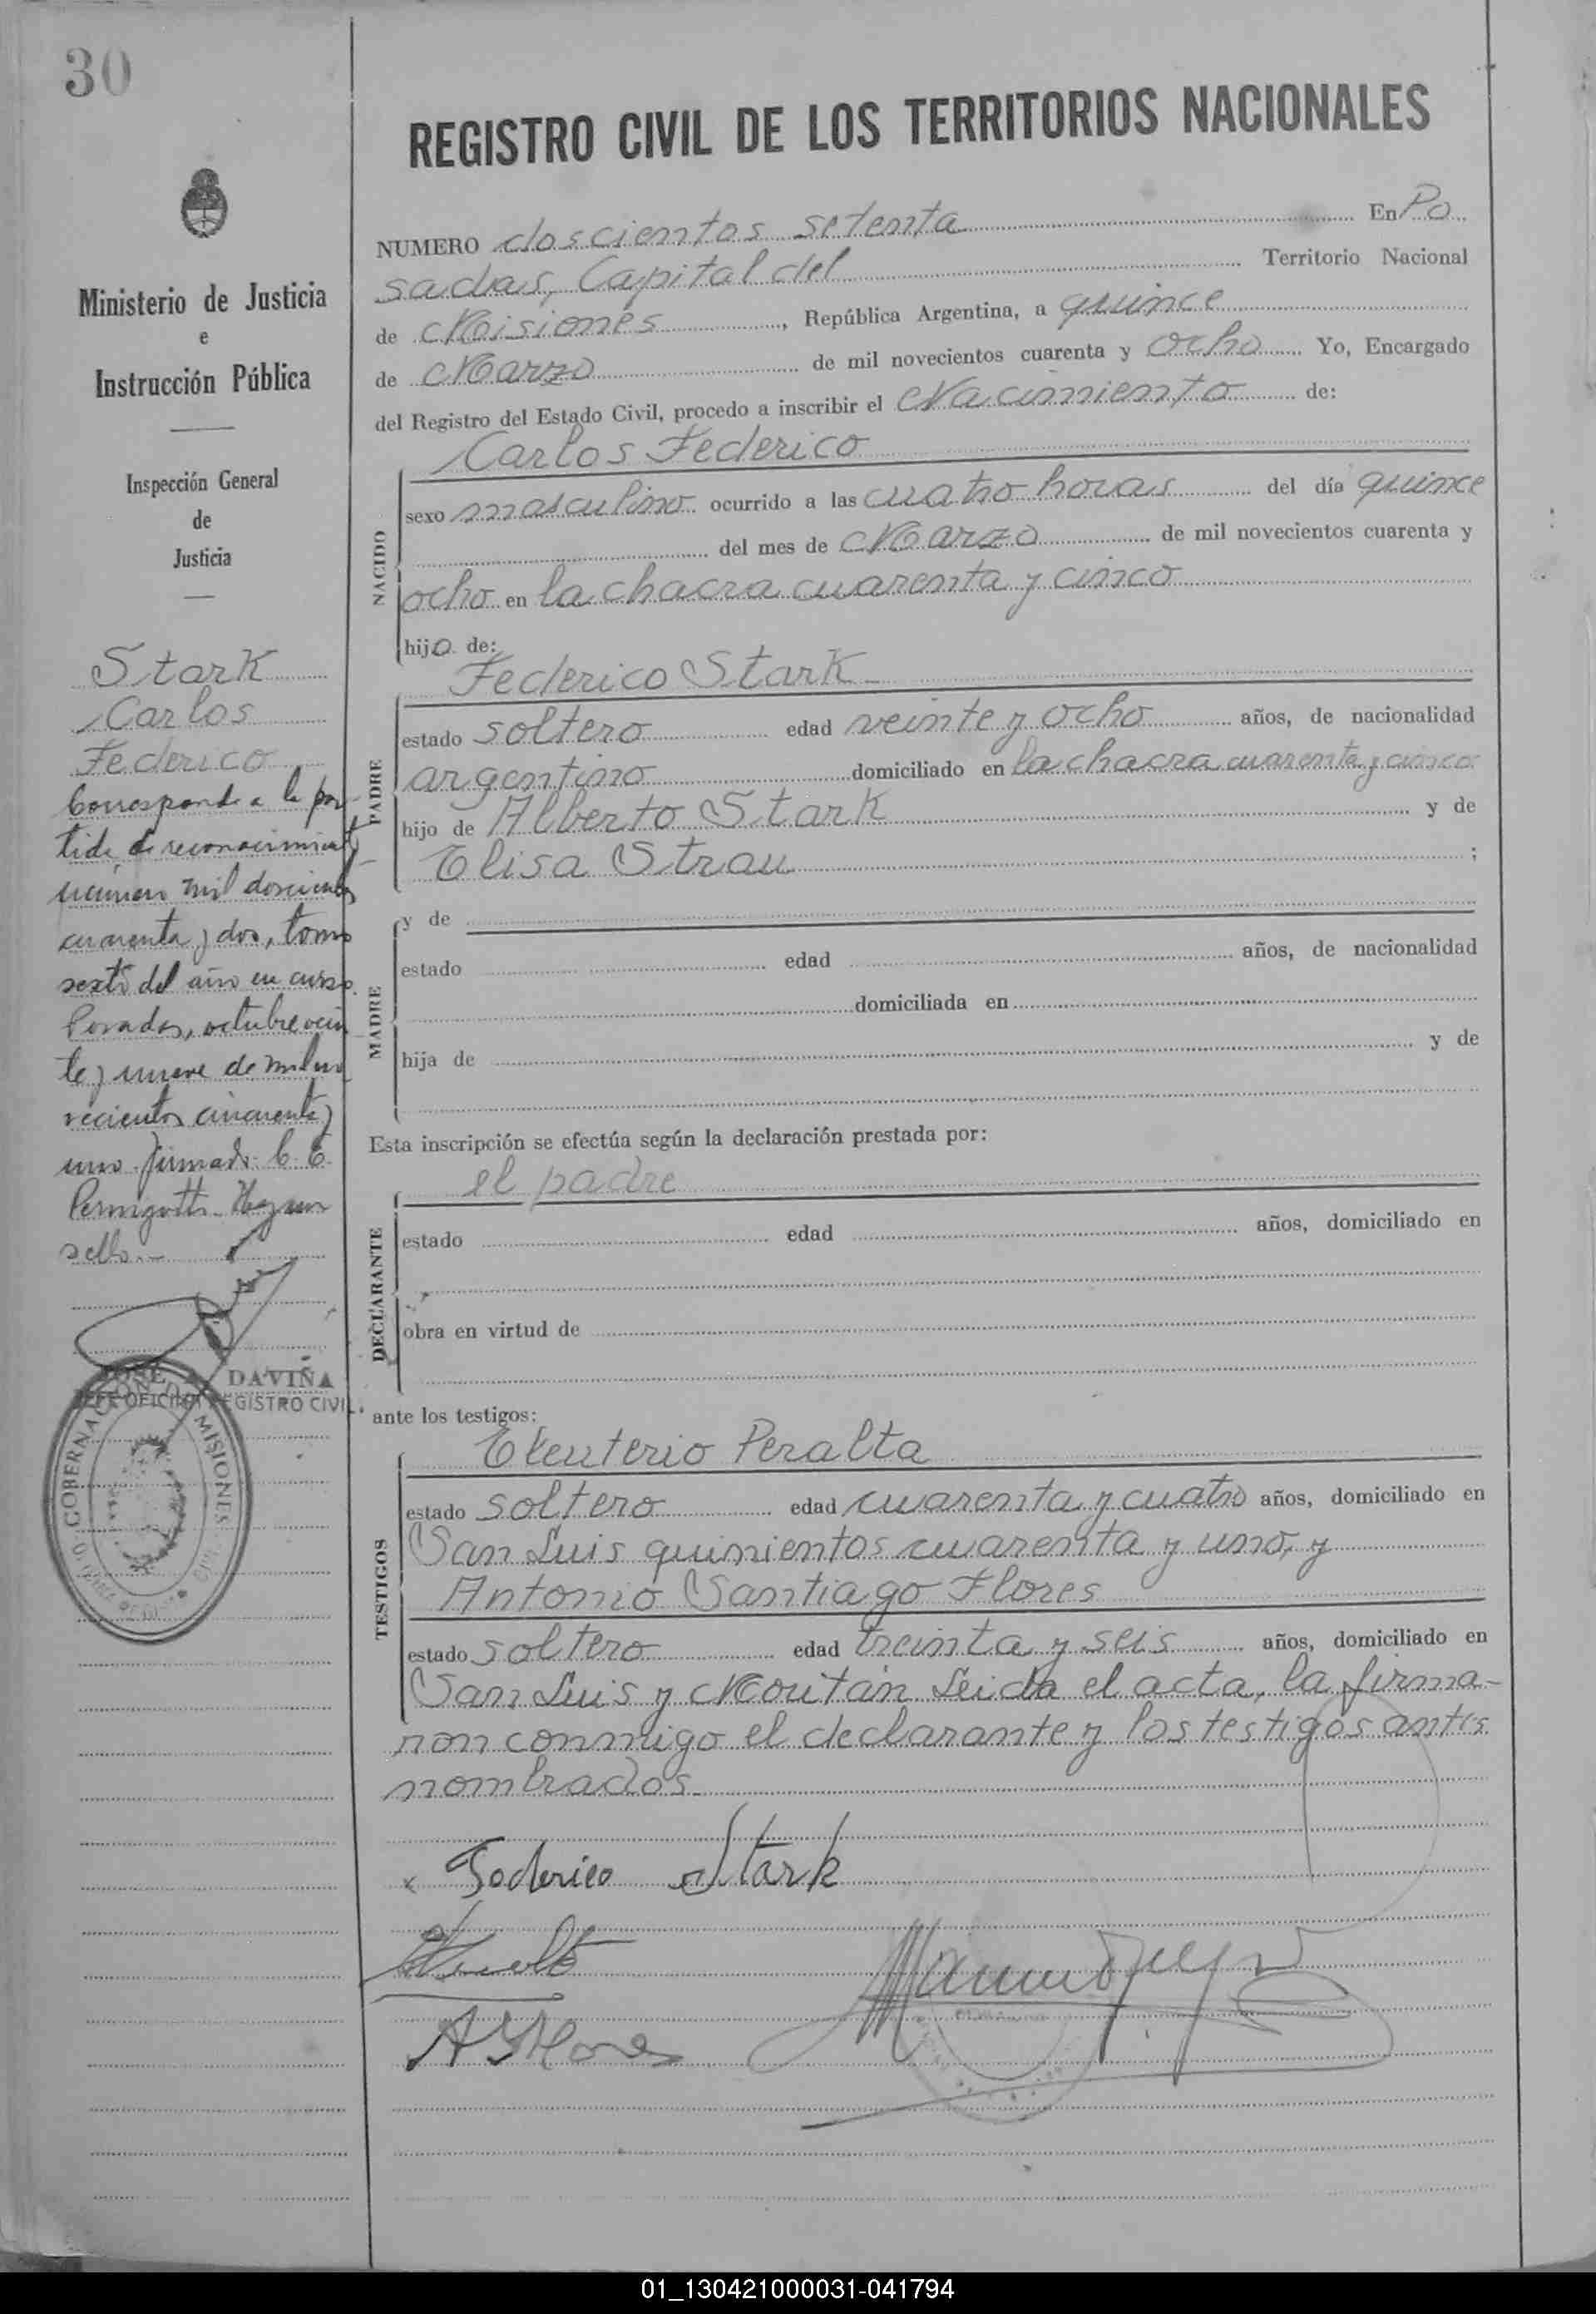 30
REGISTRO CIVIL DE LOS TERRITORIOS NACIONALES
NUMERO doscientos setenta En Po
sadas, Capital del Territorio Nacional
de Misiones, República Argentina, a quince
de Marzo de mil novecientos cuarenta y ocho Yo, Encargado
del Registro del Estado Civil, procedo a inscribir el Nacimiento de:
Carlos Federico
NACIDO
sexo masculino ocurrido a las cuatro horas del día quince
del mes de Marzo de mil novecientos cuarenta y
ocho en la chacra cuarenta y cinco
hijo de:
Federico Stark
PADRE
estado soltero edad veinte y ocho años, de nacionalidad
argentino domiciliado en la chacra cuarenta y cinco
hijo de Alberto Stark y de
Elisa Strau ;
MADRE
y de
estado edad años, de nacionalidad
domiciliada en
hija de y de
Esta inscripción se efectúa según la declaración prestada por:
el padre
DECLARANTE
estado edad años, domiciliado en
obra en virtud de
ante los testigos:
Eleuterio Peralta
TESTIGOS
estado soltero edad cuarenta y cuatro años, domiciliado en
San Luis quinientos cuarenta y uno, y
Antonio Santiago Flores
estado soltero edad treinta y seis años, domiciliado en
San Luis y Roután Leida el acta, la firma-
ron conmigo el declarante y los testigos antes
nombrados.
x Federico Stark
A S Flores
Ministerio de Justicia
e
Instrucción Pública
Inspección General
de
Justicia
Stark
Carlos
Federico
Corresponde a la par-
tida de reconocimiento
número mil doscientos
cuarenta y dos, tomo
sexto del año en curso.
Posadas, octubre vein
te y nueve de mil no
vecientos cincuenta y
uno. firmado: C. E.
Pernigotti. Hay un
sello.-
JOSE DAVIÑA
JEFE OFICINA REGISTRO CIVIL
GOBERNACION DE MISIONES
01_130421000031-041794